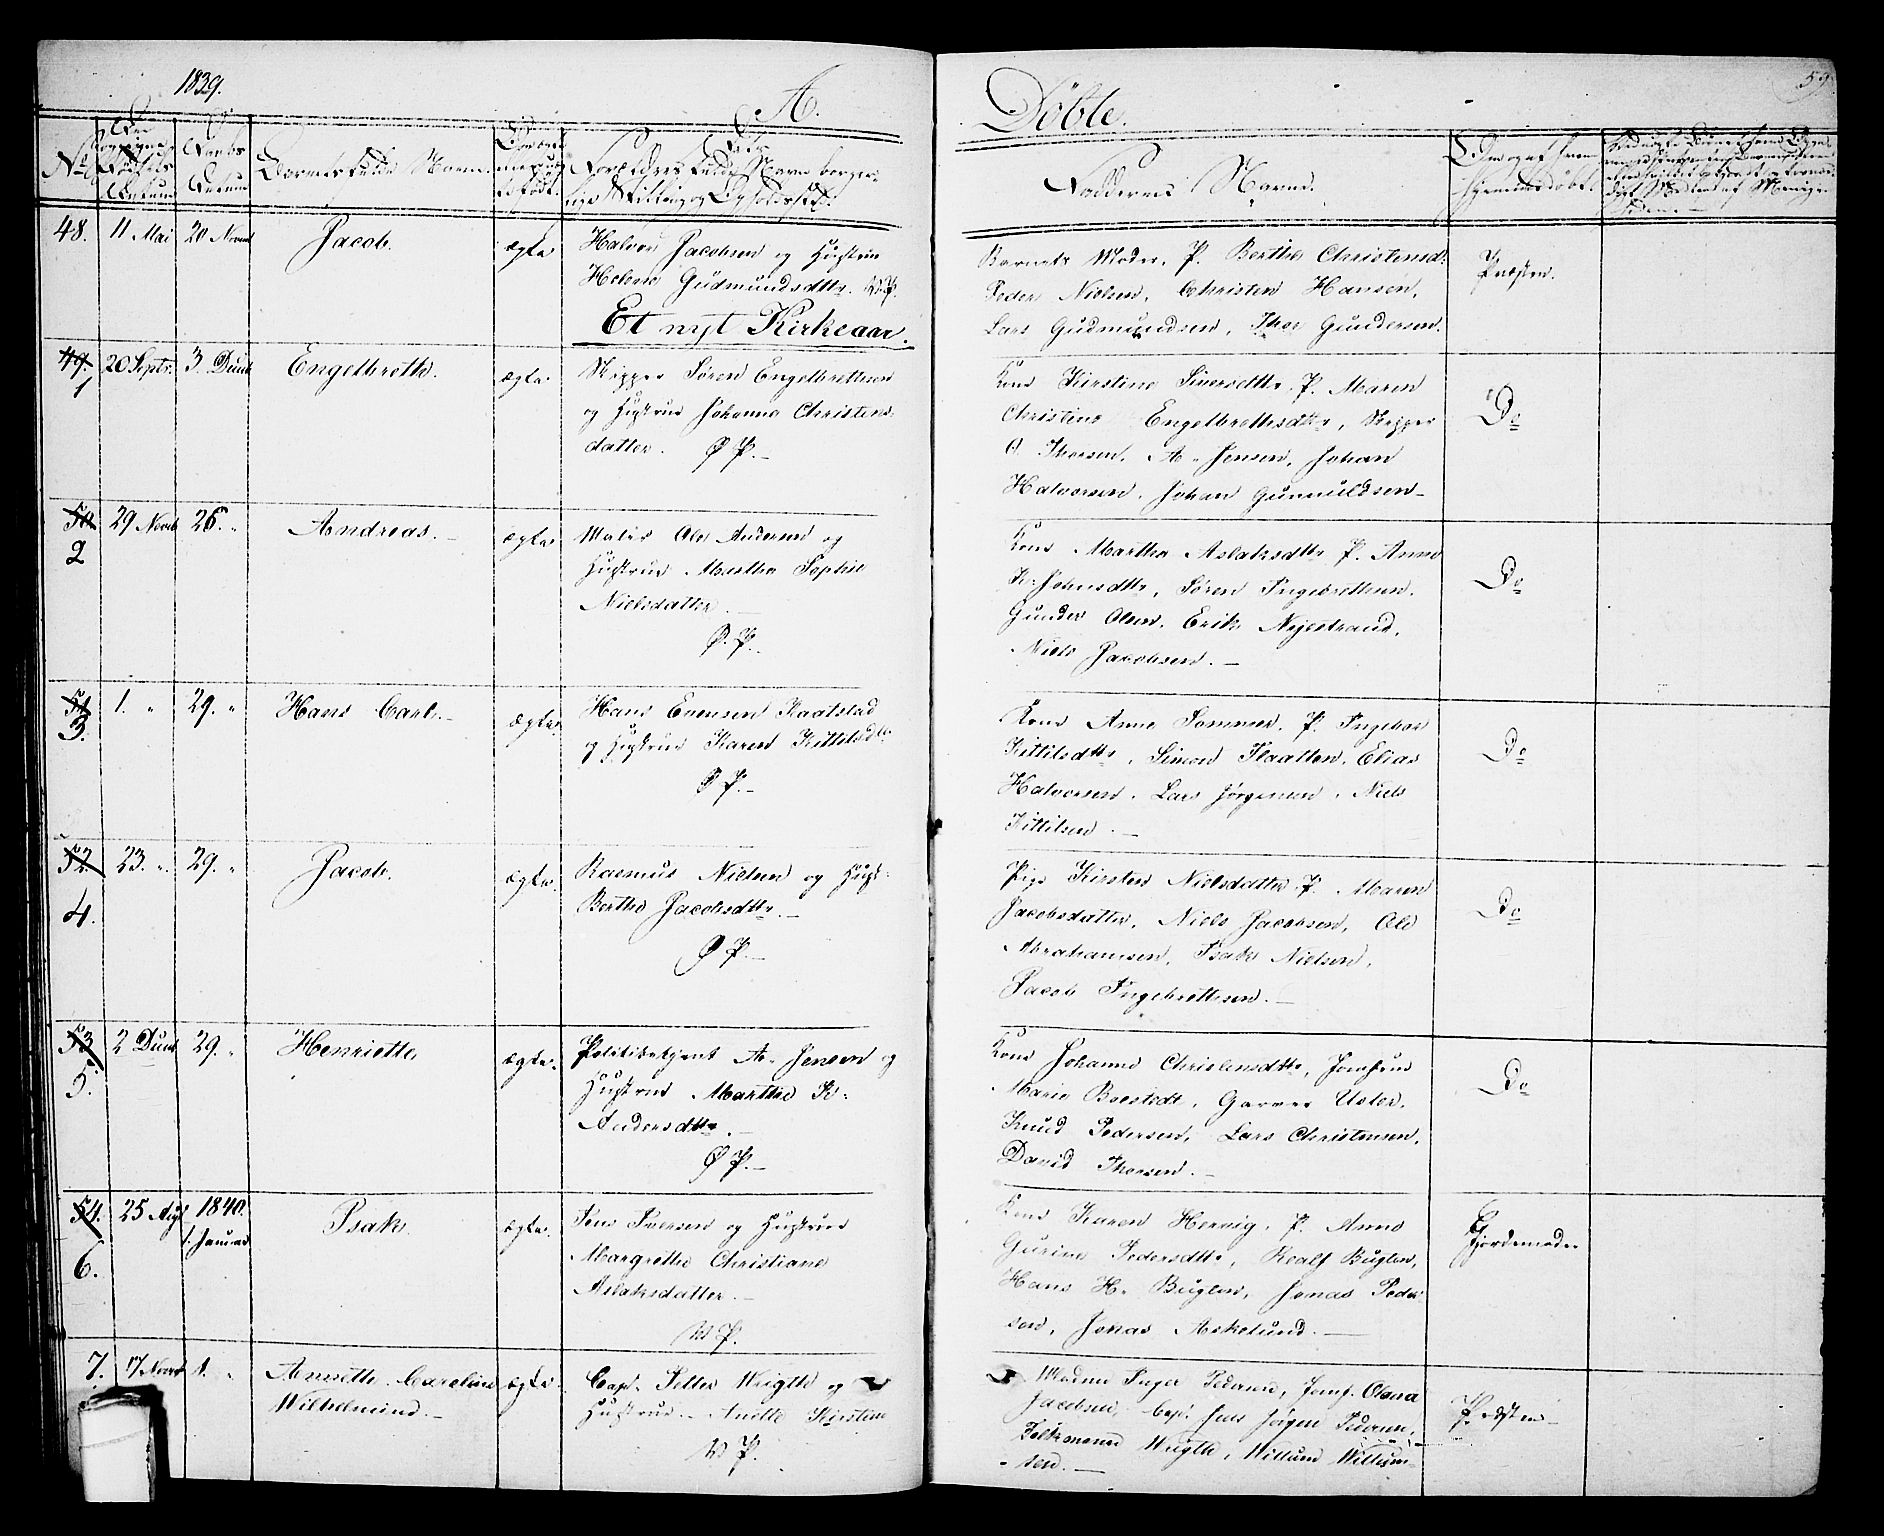 1839.
A.
Døbte.
59
No
Barnets fulde Navn.
Forældres fulde Navne borger-
lige Stilling og Opholdssted.
Faddernes Navne.
48. 11 Mai 20 Novb Jacob. ægte Halvor Jacobsen og Hustrue
Helene Gudmundsdtr. W.P.
Barnets Moder, P. Berthe Christensdt.
Peder Nielsen, Christen Hansen,
Lars Gudmundsen, Thor Gundersen.
Præsten.
Et nyt Kirkeaar.
49. 1 20 Septr. 3 Decmb Engelbreth. ægte. Skipper Søren Engelbrethsen
og Hustrue Johanne Christens-
datter. Ø P.
Kone Kirstine Siversdttr. P. Maren
Christine Engelbrethsdttr, Skipper
O. Thorsen, A. Jensen, Johan
Halvorsen. Johan Gunnuldsen
Do
50. 2 29 Novb 26. " Andreas. ægte. Maler Ole Andersen og
Hustrue Marthe Sophie
Nielsdatter.
Ø. P.
Kone Marthe Aslaksdttr P. Anne
K. Johnsdttr, Søren Ingebrethsen.
Gunder Olsen. Erik Nyestrand.
Niels Jacobsen.
Do
51. 3. 1. " 29. " Hans Carl. ægte. Hans Evensen Raatstad
og Hustrue Karen Kittilsdtr
Ø P.
Kone Anne Sommer. P. Ingebor
Kittilsdttr, Simon Flaatten. Elias
Halvorsen. Lars Jørgensen, Niels
Kittilsen.
Do
52. 4. 23. " 29. " Jacob. ægte. Rasmus Nielsen og Hust:
Berthe Jacobsdttr.
Ø P.
Pige Kirsten Nielsdatter P. Maren
Jacobsdatter, Niels Jacobsen, Ole
Abrahamsen, Isak Nielsen,
Jacob Ingebrethsen.
Do
53. 5. 2 Decmb 29. " Henriette ægte. Politibetjent A. Jensen og
Hustrue Marthe K.
Andersdttr.
Ø P.
Kone Johanne Christensdttr, Jomfrue
Marie Boestedt, Garver Usler,
Knud Pedersen, Lars Christensen,
David Thorsen.
Do
54. 6. 25 Augt 1840. 1. Januar Isak. ægte. Jens Iversen og Hustrue
Margrethe Christiane
Aslaksdatter.
W P.
Kone Karen Hervig. P. Anne
Gurine Pedersdttr, Realf Buglen,
Hans H. Buglen, Jonas Peder-
sen, Jonas Askelund.
Gjordemoder
7. 17 Novbr 1. " Annette Caroline
Wilhelmine. ægte. Capt. Petter Wrigth og
Hustrue Anette Kirstine
W P.
Madme Inger Pedersen, Jomf. Olava
Jacobsen, Capt. Jens Jørgen Pedersen,
Folkmann Wrigth, Willum Willum-
sen.
Præsten